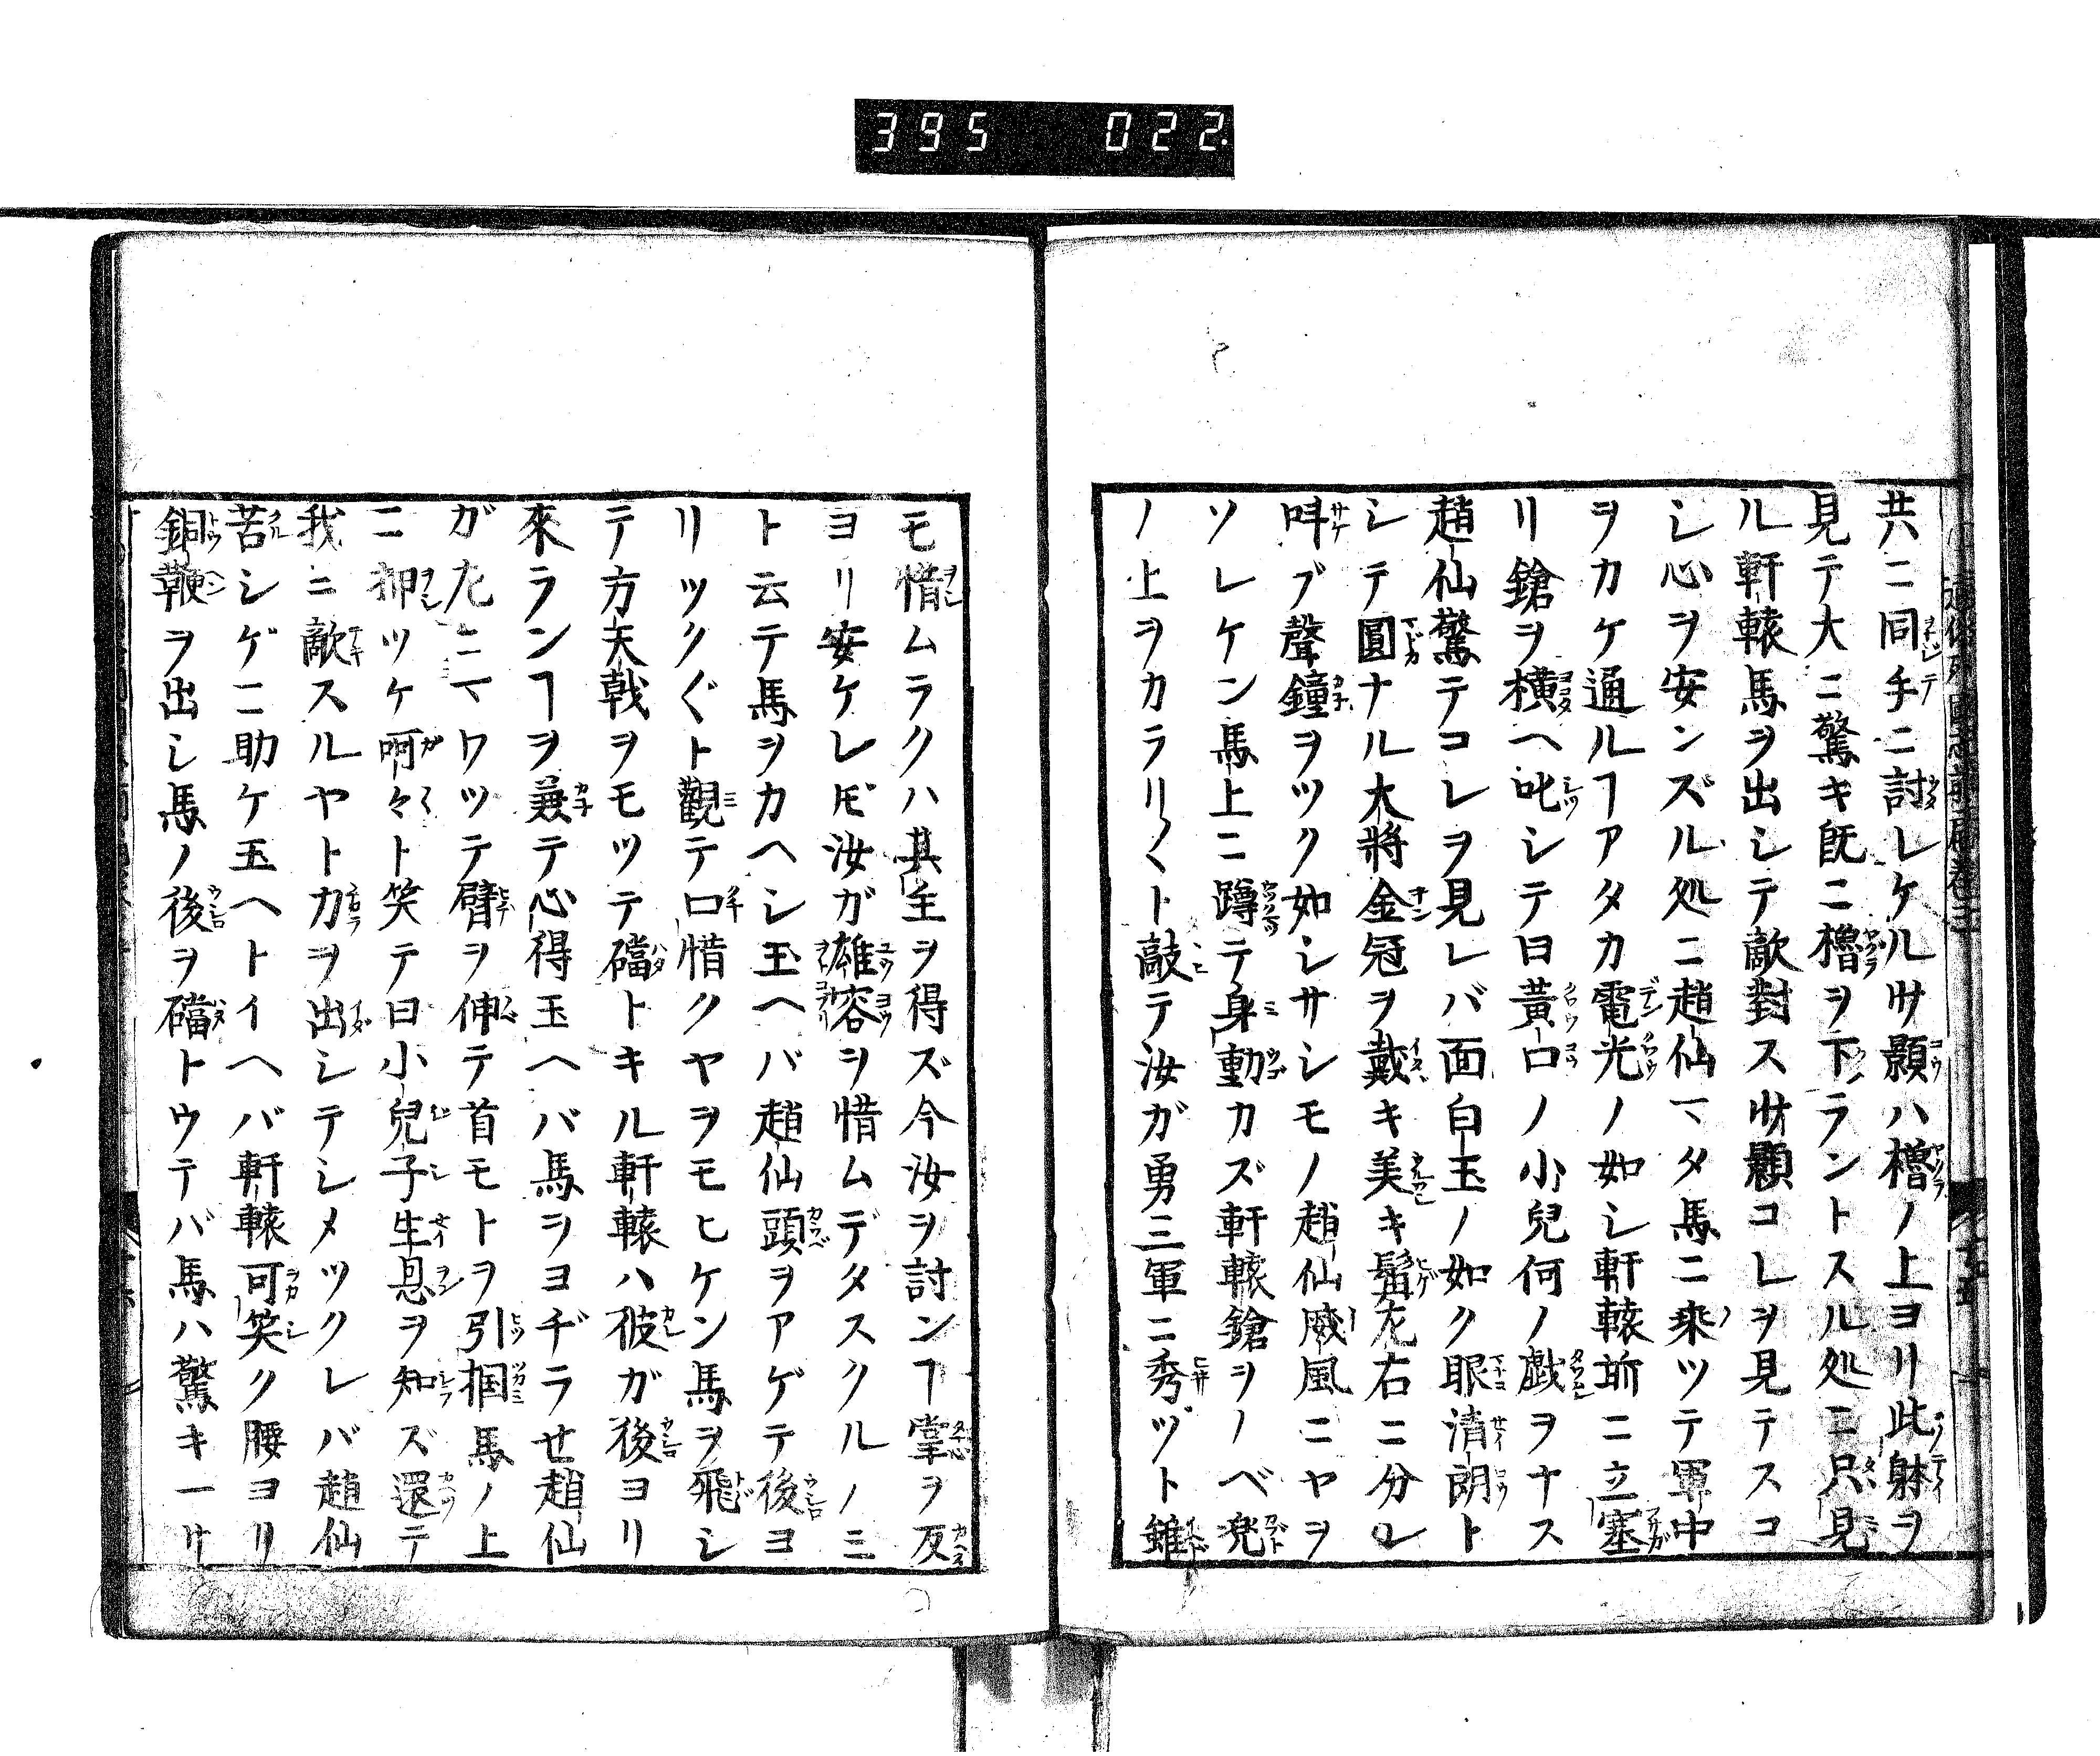 395 022
共ニ同手ニ討レケルサ顥ハ櫓ノ上ヨリ此躰ヲ
見テ大ニ驚キ既ニ櫓ヲ下ラントスル処ニ只見
ル軒轅馬ヲ出シテ敵對ス顥コレヲ見テスコ
シ心ヲ安ンズル処ニ趙仙マタ馬ニ乗ツテ軍中
ヲカケ通ルヿアタカ電光ノ如シ軒轅前ニ立塞
リ鎗ヲ横ヘ叱シテ曰黄口ノ小兒何ノ戯ヲナス
趙仙驚テコレヲ見レバ面白玉ノ如ク眼清朗ト
シテ圓ナル大將金冠ヲ戴キ美キ髯左右ニ分レ
呌ブ聲鐘ヲツク如シサシモノ趙仙威風ニヤヲ
ソレケン馬上ニ蹲テ身動カズ軒轅鎗ヲノベ兜
ノ上ヲカラリ〱ト敲テ汝ガ勇三軍ニ秀ヅト雖
モ惜ムラクハ其主ヲ得ズ今汝ヲ討ンヿ掌ヲ反
ヨリ安ケレ𪜈汝ガ雄容ヲ惜ムデタスクルノミ
ト云テ馬ヲカヘシ玉ヘバ趙仙頭ヲアゲテ後ヨ
リツクぐト觀テ口惜クヤヲモヒケン馬ヲ飛シ
テ方天戟ヲモツテ礑トキル軒轅ハ彼ガ後ヨリ
來ランヿヲ兼テ心得玉ヘバ馬ヲヨヂラせ趙仙
ガ左ニマワツテ臂ヲ伸テ首モトヲ引掴馬ノ上
ニ押ツケ呵々ト笑テ曰小兒子生息ヲ知ズ還テ
我ニ敵スルヤト力ヲ出シテシメツクレバ趙仙
苦シゲニ助ケ玉ヘトイヘバ軒轅可笑ク腰ヨリ
銅鞭ヲ出シ馬ノ後ヲ礑トウテバ馬ハ驚キ一サ